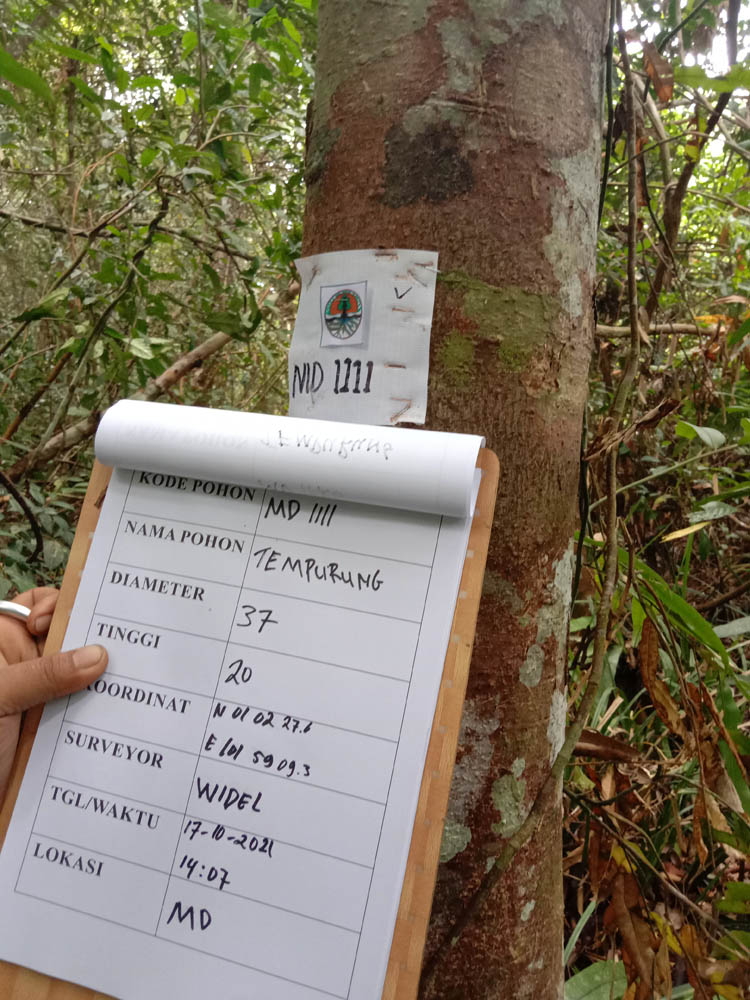 MD 1111
KODE POHON MD 1111
NAMA POHON TEMPURUNG
DIAMETER 37
TINGGI 20
KOORDINAT N 01 02 27.6
E 101 59 09.3
SURVEYOR WIDEL
TGL/WAKTU 17-10-2021
14:07
LOKASI MD